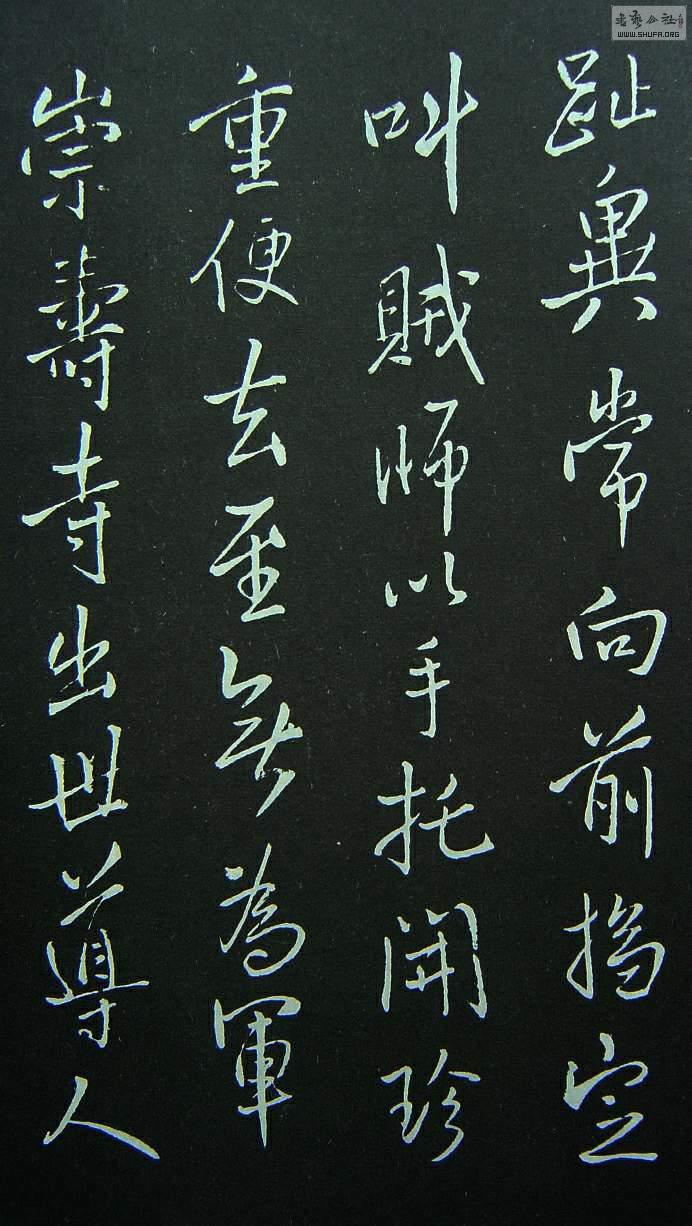 趾異常向前搊定
叫賊師以手托開珍
重便去至無為軍
崇壽寺出世導人
書藝公社
WWW.SHUFA.ORG